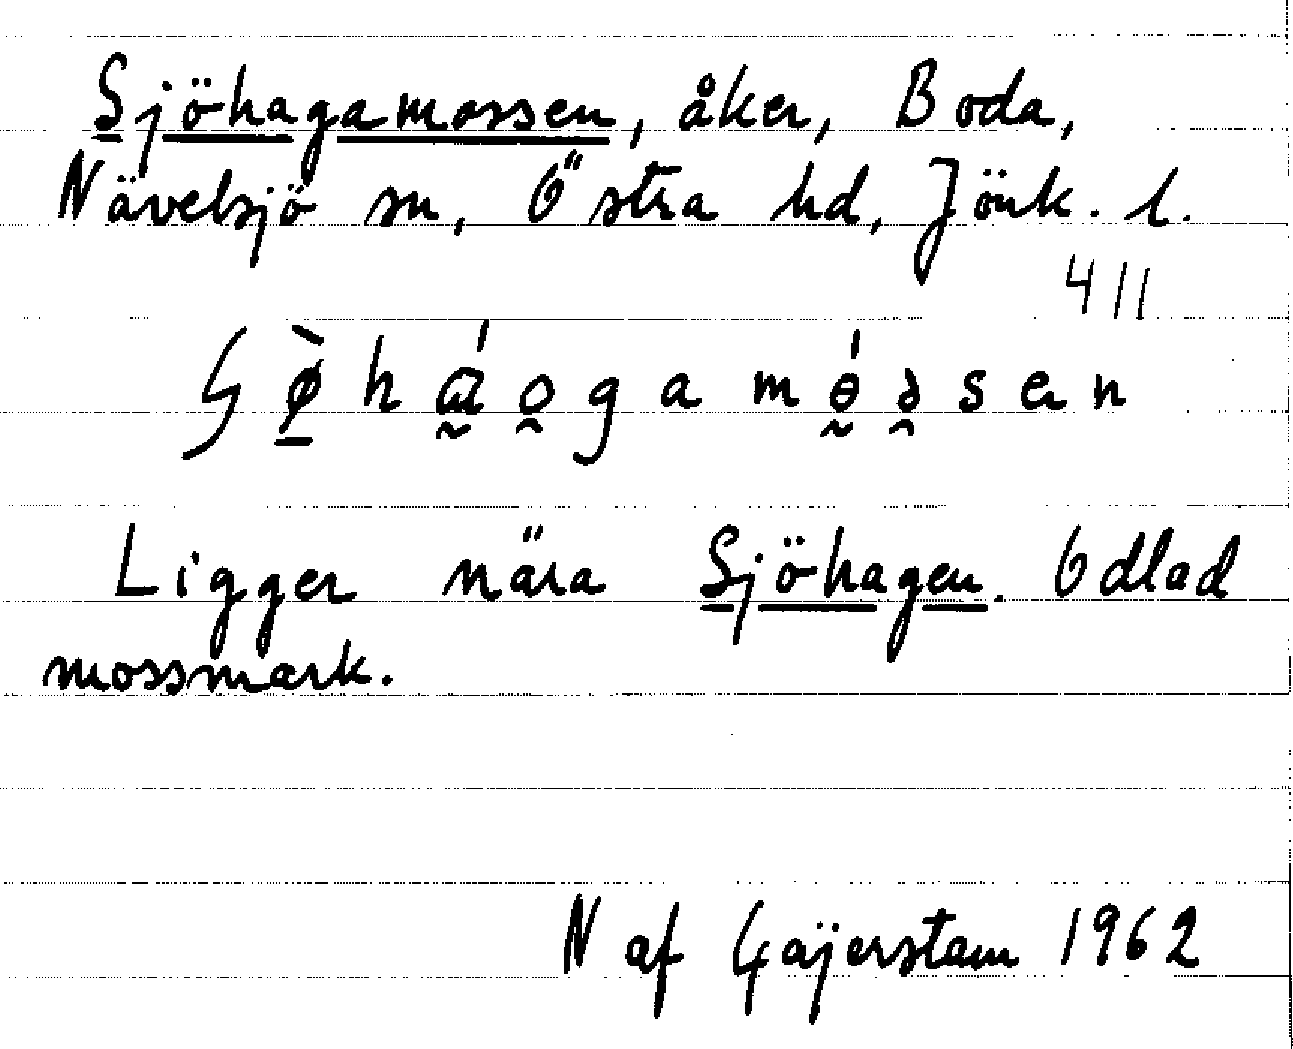 Sjöhagamossen, åker, Boda,
Nävelsjö sn, Östra hd, Jönk. l.
4 11
Ligger nära Sjöhagen. Odlad
mossmark.
N af Gäjerstam 1962